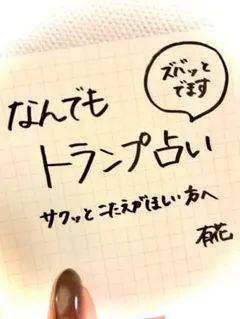 ズバッと
でます
なんでも
トランプ占い
サクッとこたえがほしい方へ
有花